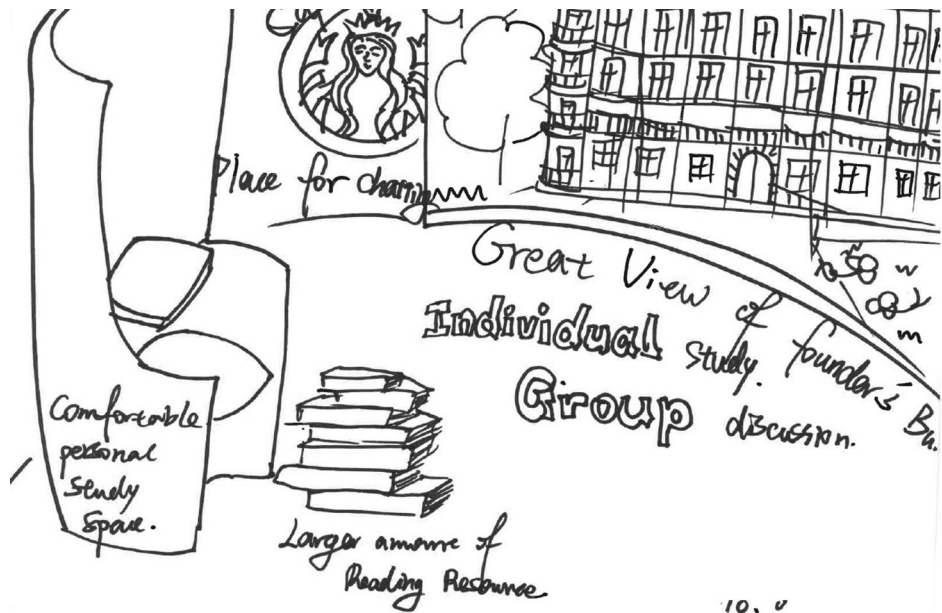 Place for chatting
Great View of founder's Bu.
Individual study.
Group discussion.
Comfortable
personal
study
space.
Larger amount of
Reading Resource.